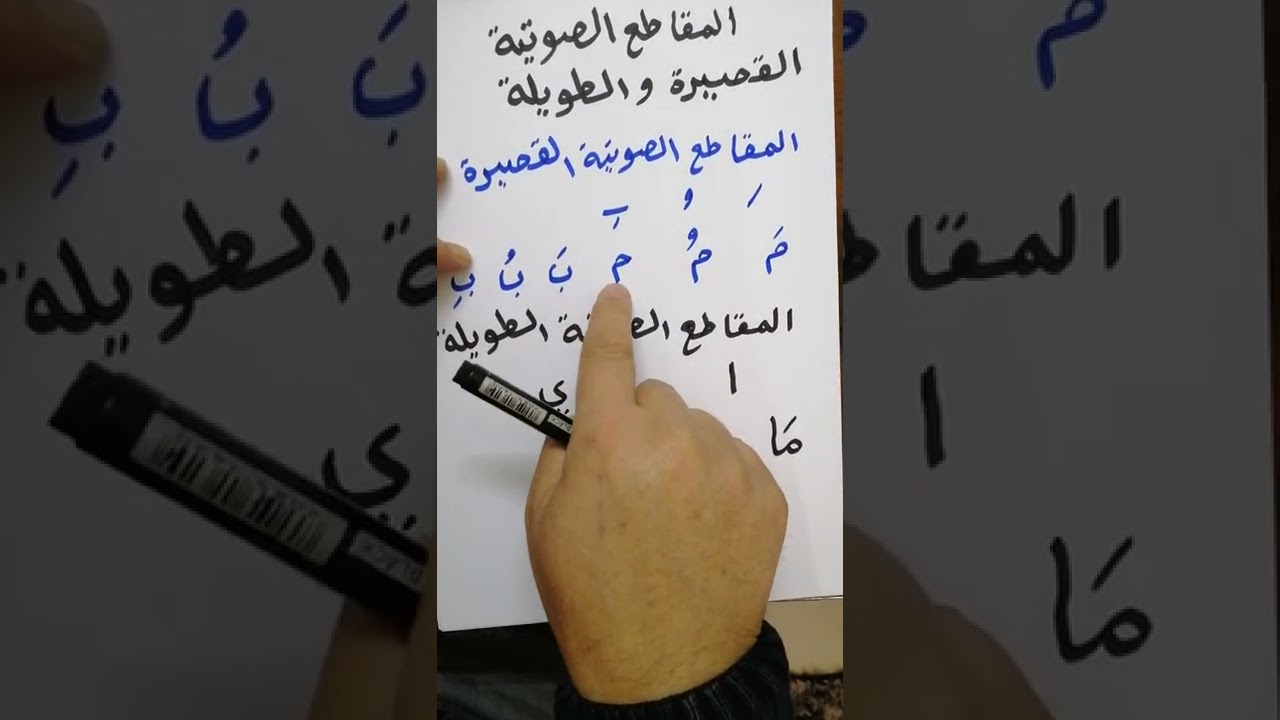 المقاطع الصوتية
القصيرة والطويلة
المقاطع الصوتية القصيرة
َ ُ ِ
مَ مُ مِ بَ بُ بِ
المقاطع الطويلة
ا ي
مَا